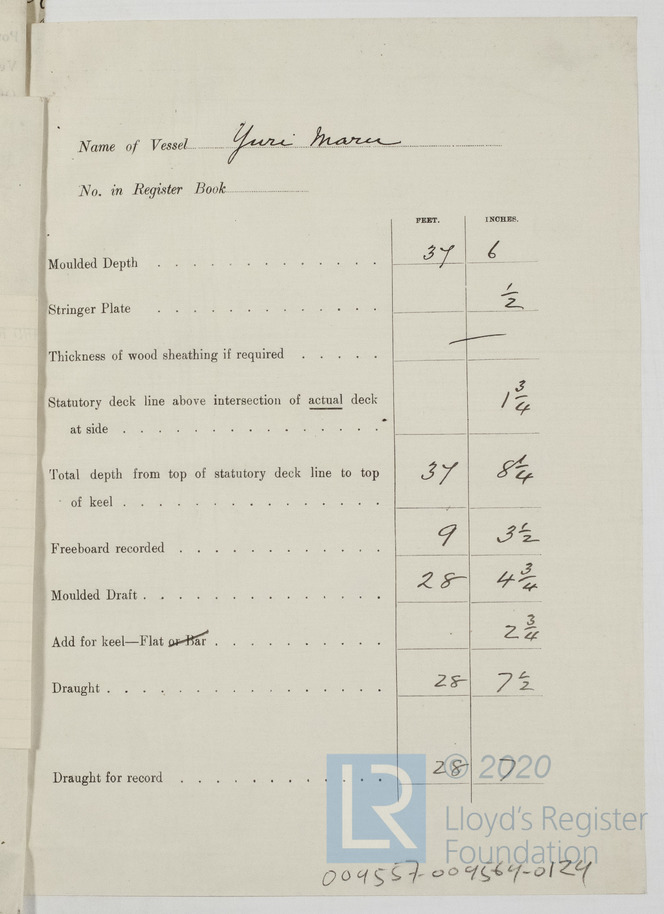 Name of Vessel Yuri Maru
No. in Register Book
FEET. INCHES.
Moulded Depth . . . . . . . . . . . . . 37 6
Stringer Plate . . . . . . . . . . . . . 1/2
Thickness of wood sheathing if required . . . . . —
Statutory deck line above intersection of actual deck 1 3/4
at side . . . . . . . . . . . . . . .
Total depth from top of statutory deck line to top 37 8 1/4
of keel . . . . . . . . . . . . . . .
Freeboard recorded . . . . . . . . . . . . 9 3 1/2
Moulded Draft . . . . . . . . . . . . . . 28 4 3/4
Add for keel—Flat or Bar . . . . . . . . . . 2 3/4
Draught . . . . . . . . . . . . . . . . 28 7 1/2
Draught for record . . . . . . . . . . . . 28 7
© 2020
LR
Lloyd's Register
Foundation
009557-009564-0124